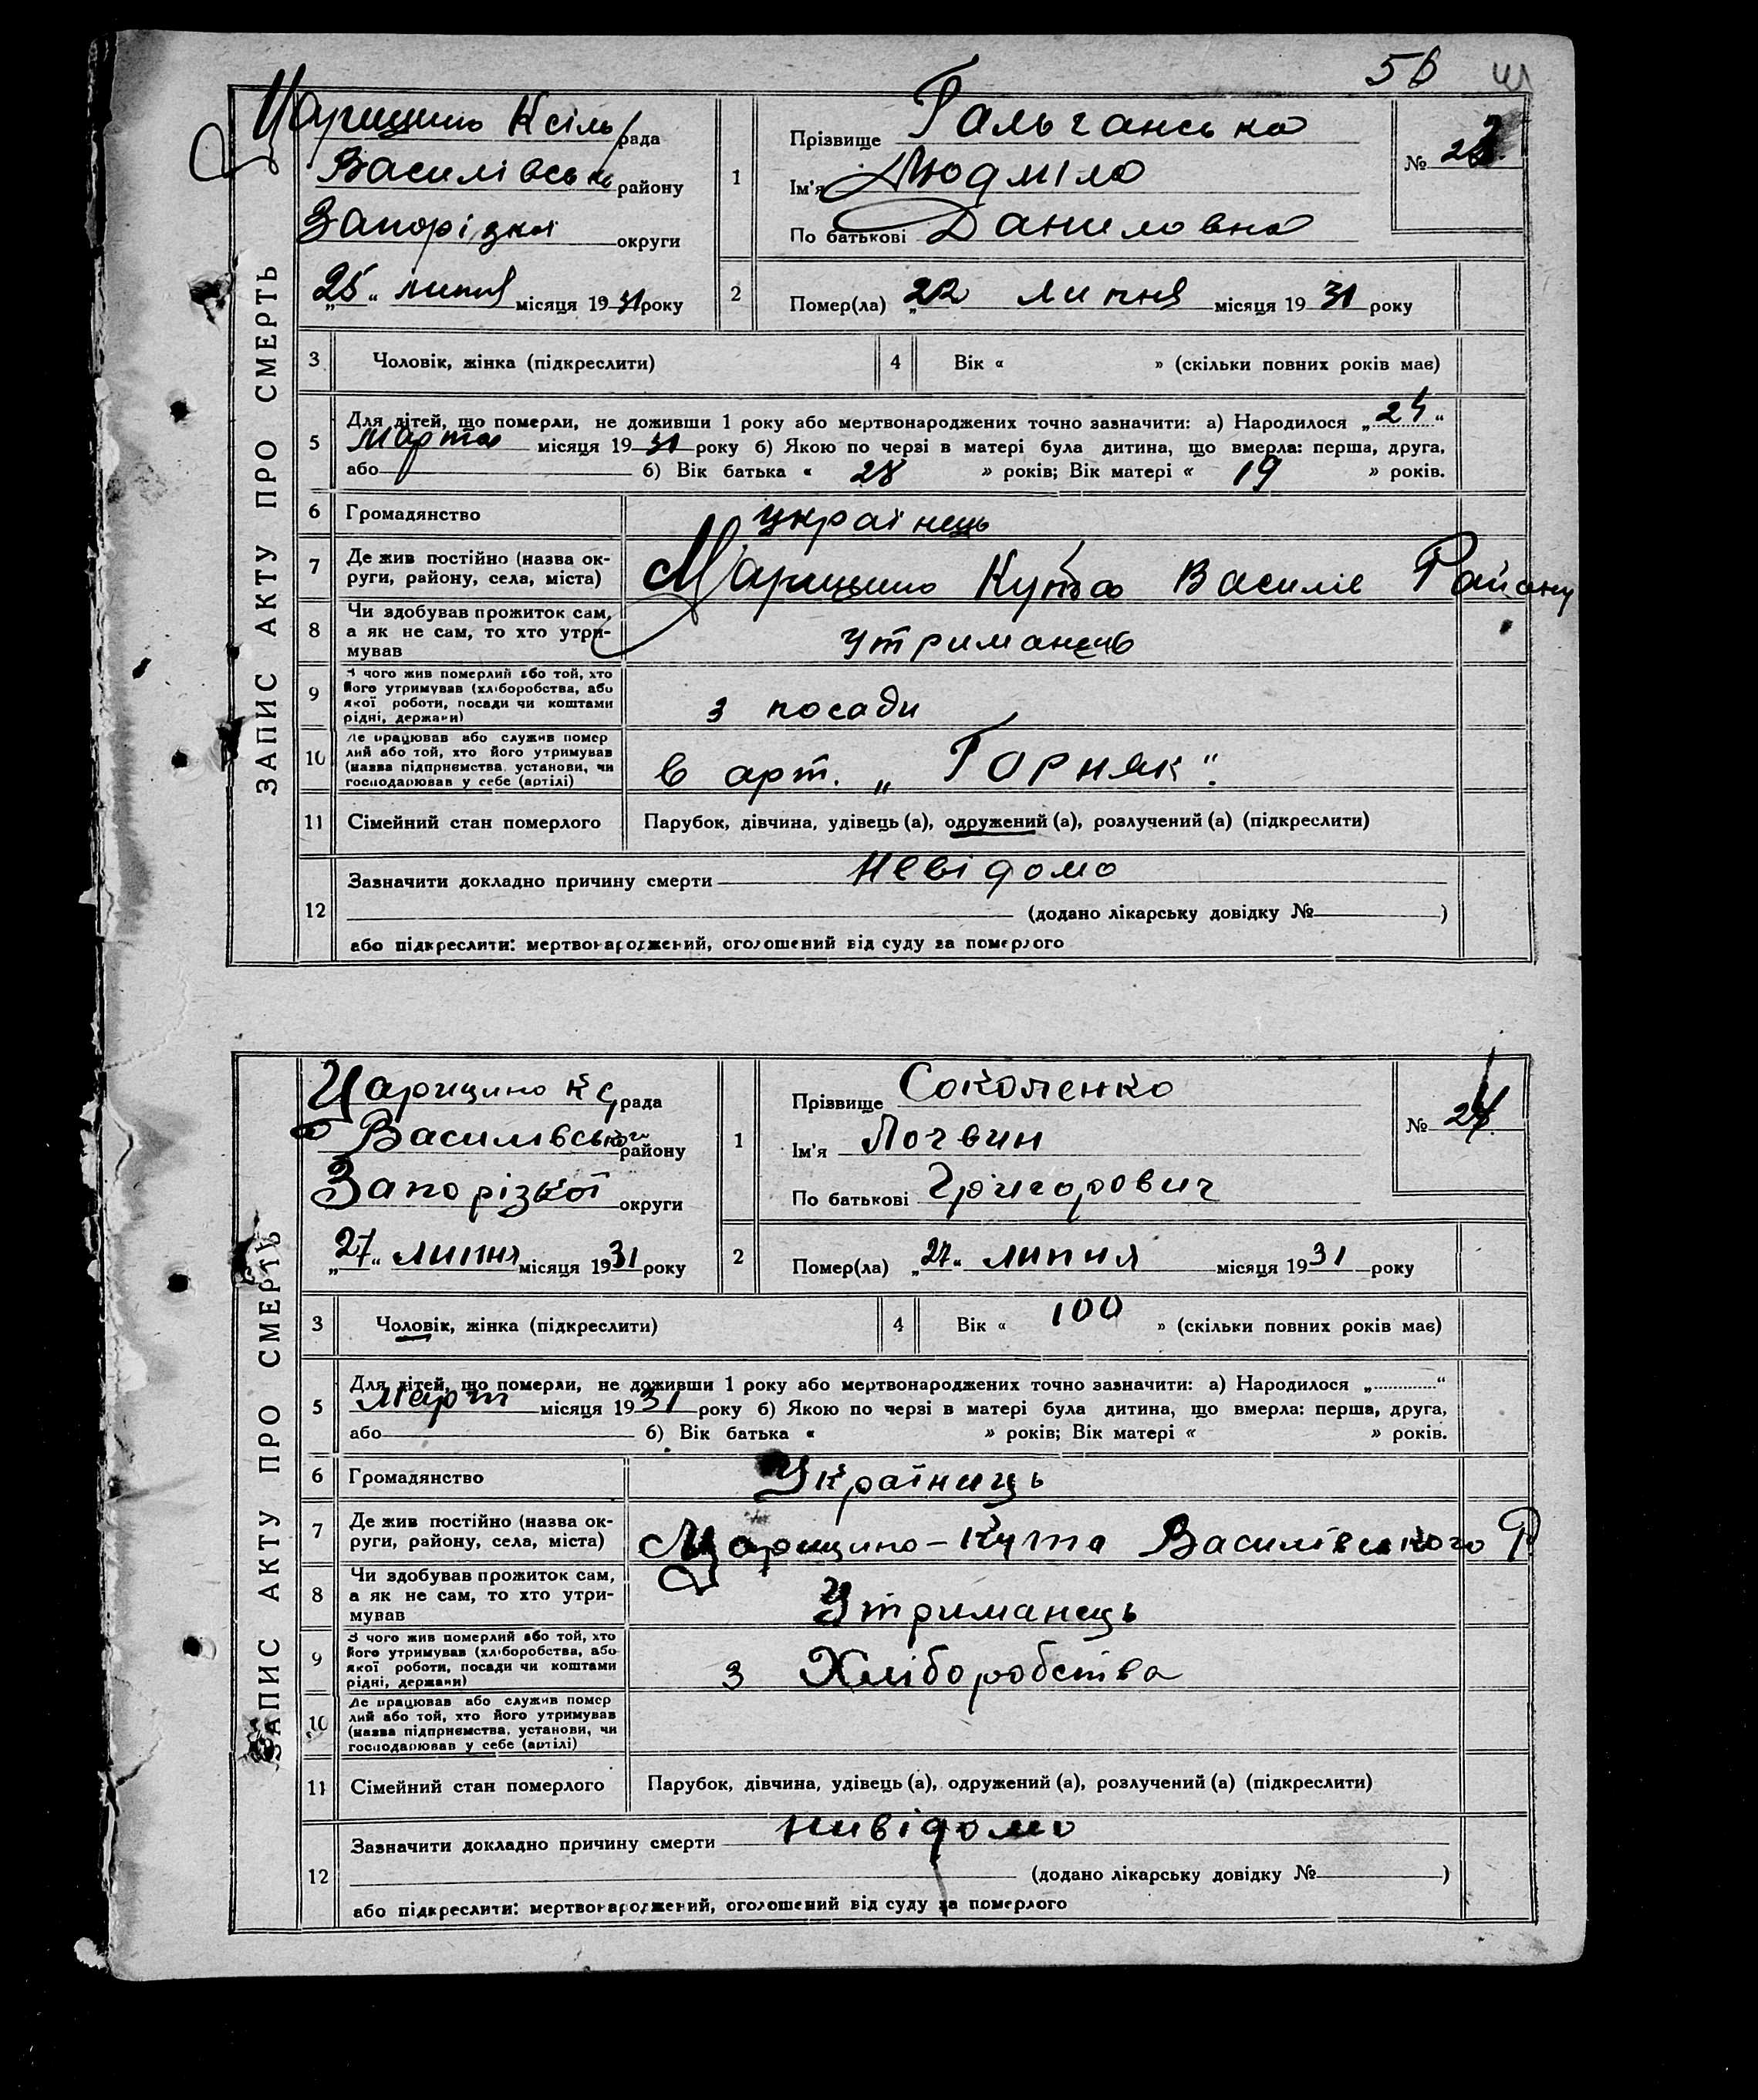 56
ЗАПИС АКТУ ПРО СМЕРТЬ
Царицино Ксіль/рада
Василівськ району
Запорізкої округи
„25“ липня місяця 1931 року
1 Прізвище Гальчанська
Ім'я Людміла
По батькові Даниловна
№ 23
2 Помер(ла) „22 липня місяця 1931 року
3 Чоловік, жінка (підкреслити)
4 Вік « » (скільки повних років має)
5 Для дітей, що померли, не доживши 1 року або мертвонароджених точно зазначити: а) Народилося „24“
Марта місяця 1931 року б) Якою по черзі в матері була дитина, що вмерла: перша, друга,
або б) Вік батька « 28 » років; Вік матері « 19 » років.
6 Громадянство українець
7 Де жив постійно (назва ок-
руги, району, села, міста) Царицино Кута Василів Району
8 Чи здобував прожиток сам,
а як не сам, то хто утри-
мував утриманець
9 З чого жив померлий або той, хто
його утримував (хліборобства, або
якої роботи, посади чи коштами
рідні, держави) з посади
10 Де працював або служив помер
лий або той, хто його утримував
(назва підприємства, установи, чи
господарював у себе (артілі) в арт. „Горняк“.
11 Сімейний стан померлого Парубок, дівчина, удівець (а), одружений (а), розлучений (а) (підкреслити)
12 Зазначити докладно причину смерти невідомо
(додано лікарську довідку № )
або підкреслити: мертвонароджений, оголошений від суду за померлого
ЗАПИС АКТУ ПРО СМЕРТЬ
Царицино КС рада
Василівського району
Запорізкої округи
„27“ липня місяця 1931 року
1 Прізвище Соколенко
Ім'я Логвин
По батькові Григорович
№ 24
2 Помер(ла) „27“ липня місяця 1931 року
3 Чоловік, жінка (підкреслити)
4 Вік « 100 » (скільки повних років має)
5 Для дітей, що померли, не доживши 1 року або мертвонароджених точно зазначити: а) Народилося „ “
Март місяця 1931 року б) Якою по черзі в матері була дитина, що вмерла: перша, друга,
або б) Вік батька « » років; Вік матері « » років.
6 Громадянство Україниць
7 Де жив постійно (назва ок-
руги, району, села, міста) Царицино-Кута Василівського Р
8 Чи здобував прожиток сам,
а як не сам, то хто утри-
мував Утриманець
9 З чого жив померлий або той, хто
його утримував (хліборобства, або
якої роботи, посади чи коштами
рідні, держави) з Хліборобства
10 Де працював або служив помер
лий або той, хто його утримував
(назва підприємства, установи, чи
господарював у себе (артілі)
11 Сімейний стан померлого Парубок, дівчина, удівець (а), одружений (а), розлучений (а) (підкреслити)
12 Зазначити докладно причину смерти нивідомо
(додано лікарську довідку № )
або підкреслити: мертвонароджений, оголошений від суду за померлого